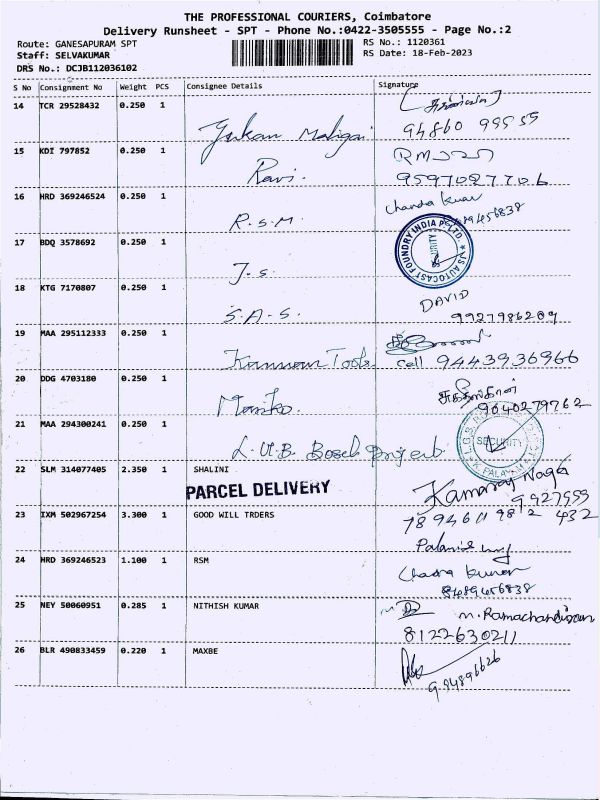 THE PROFESSIONAL COURIERS, Coimbatore
Delivery Runsheet - SPT - Phone No.:0422-3505555 - Page No.:2
Route: GANESAPURAM SPT
RS No.: 1120361
Staff: SELVAKUMAR
RS Date: 18-Feb-2023
DRS No.: DCJB112036102
S No Consignment No Weight PCS Consignee Details Signature
14 TCR 29528432 0.250 1
94860 99555
15 KDI 797852 0.250 1
Ravi.
9597027706
16 HRD 369246524 0.250 1
R.S.M. Chanda Kumar
8489456838
17 BDQ 3578692 0.250 1
J.S JS AUTOCAST FOUNDRY INDIA P LTD. SECURITY
18 KTG 7170807 0.250 1
S.A.S. DAVID
9927986209
19 MAA 295112333 0.250 1
Kannan Tools Cell 9443936966
20 DDG 4703180 0.250 1
9040279762
21 MAA 294300241 0.250 1
L.U.B. Bosch Project SECURITY
22 SLM 314077405 2.350 1 SHALINI
PARCEL DELIVERY
Kamaraj Naga
23 IXM 502967254 3.300 1 GOOD WILL TRDERS
24 HRD 369246523 1.100 1 RSM
Chanda Kumar
8489456838
25 NEY 50060951 0.285 1 NITHISH KUMAR
n. Ramachandiran
8122630211
26 BLR 490833459 0.220 1 MAXBE